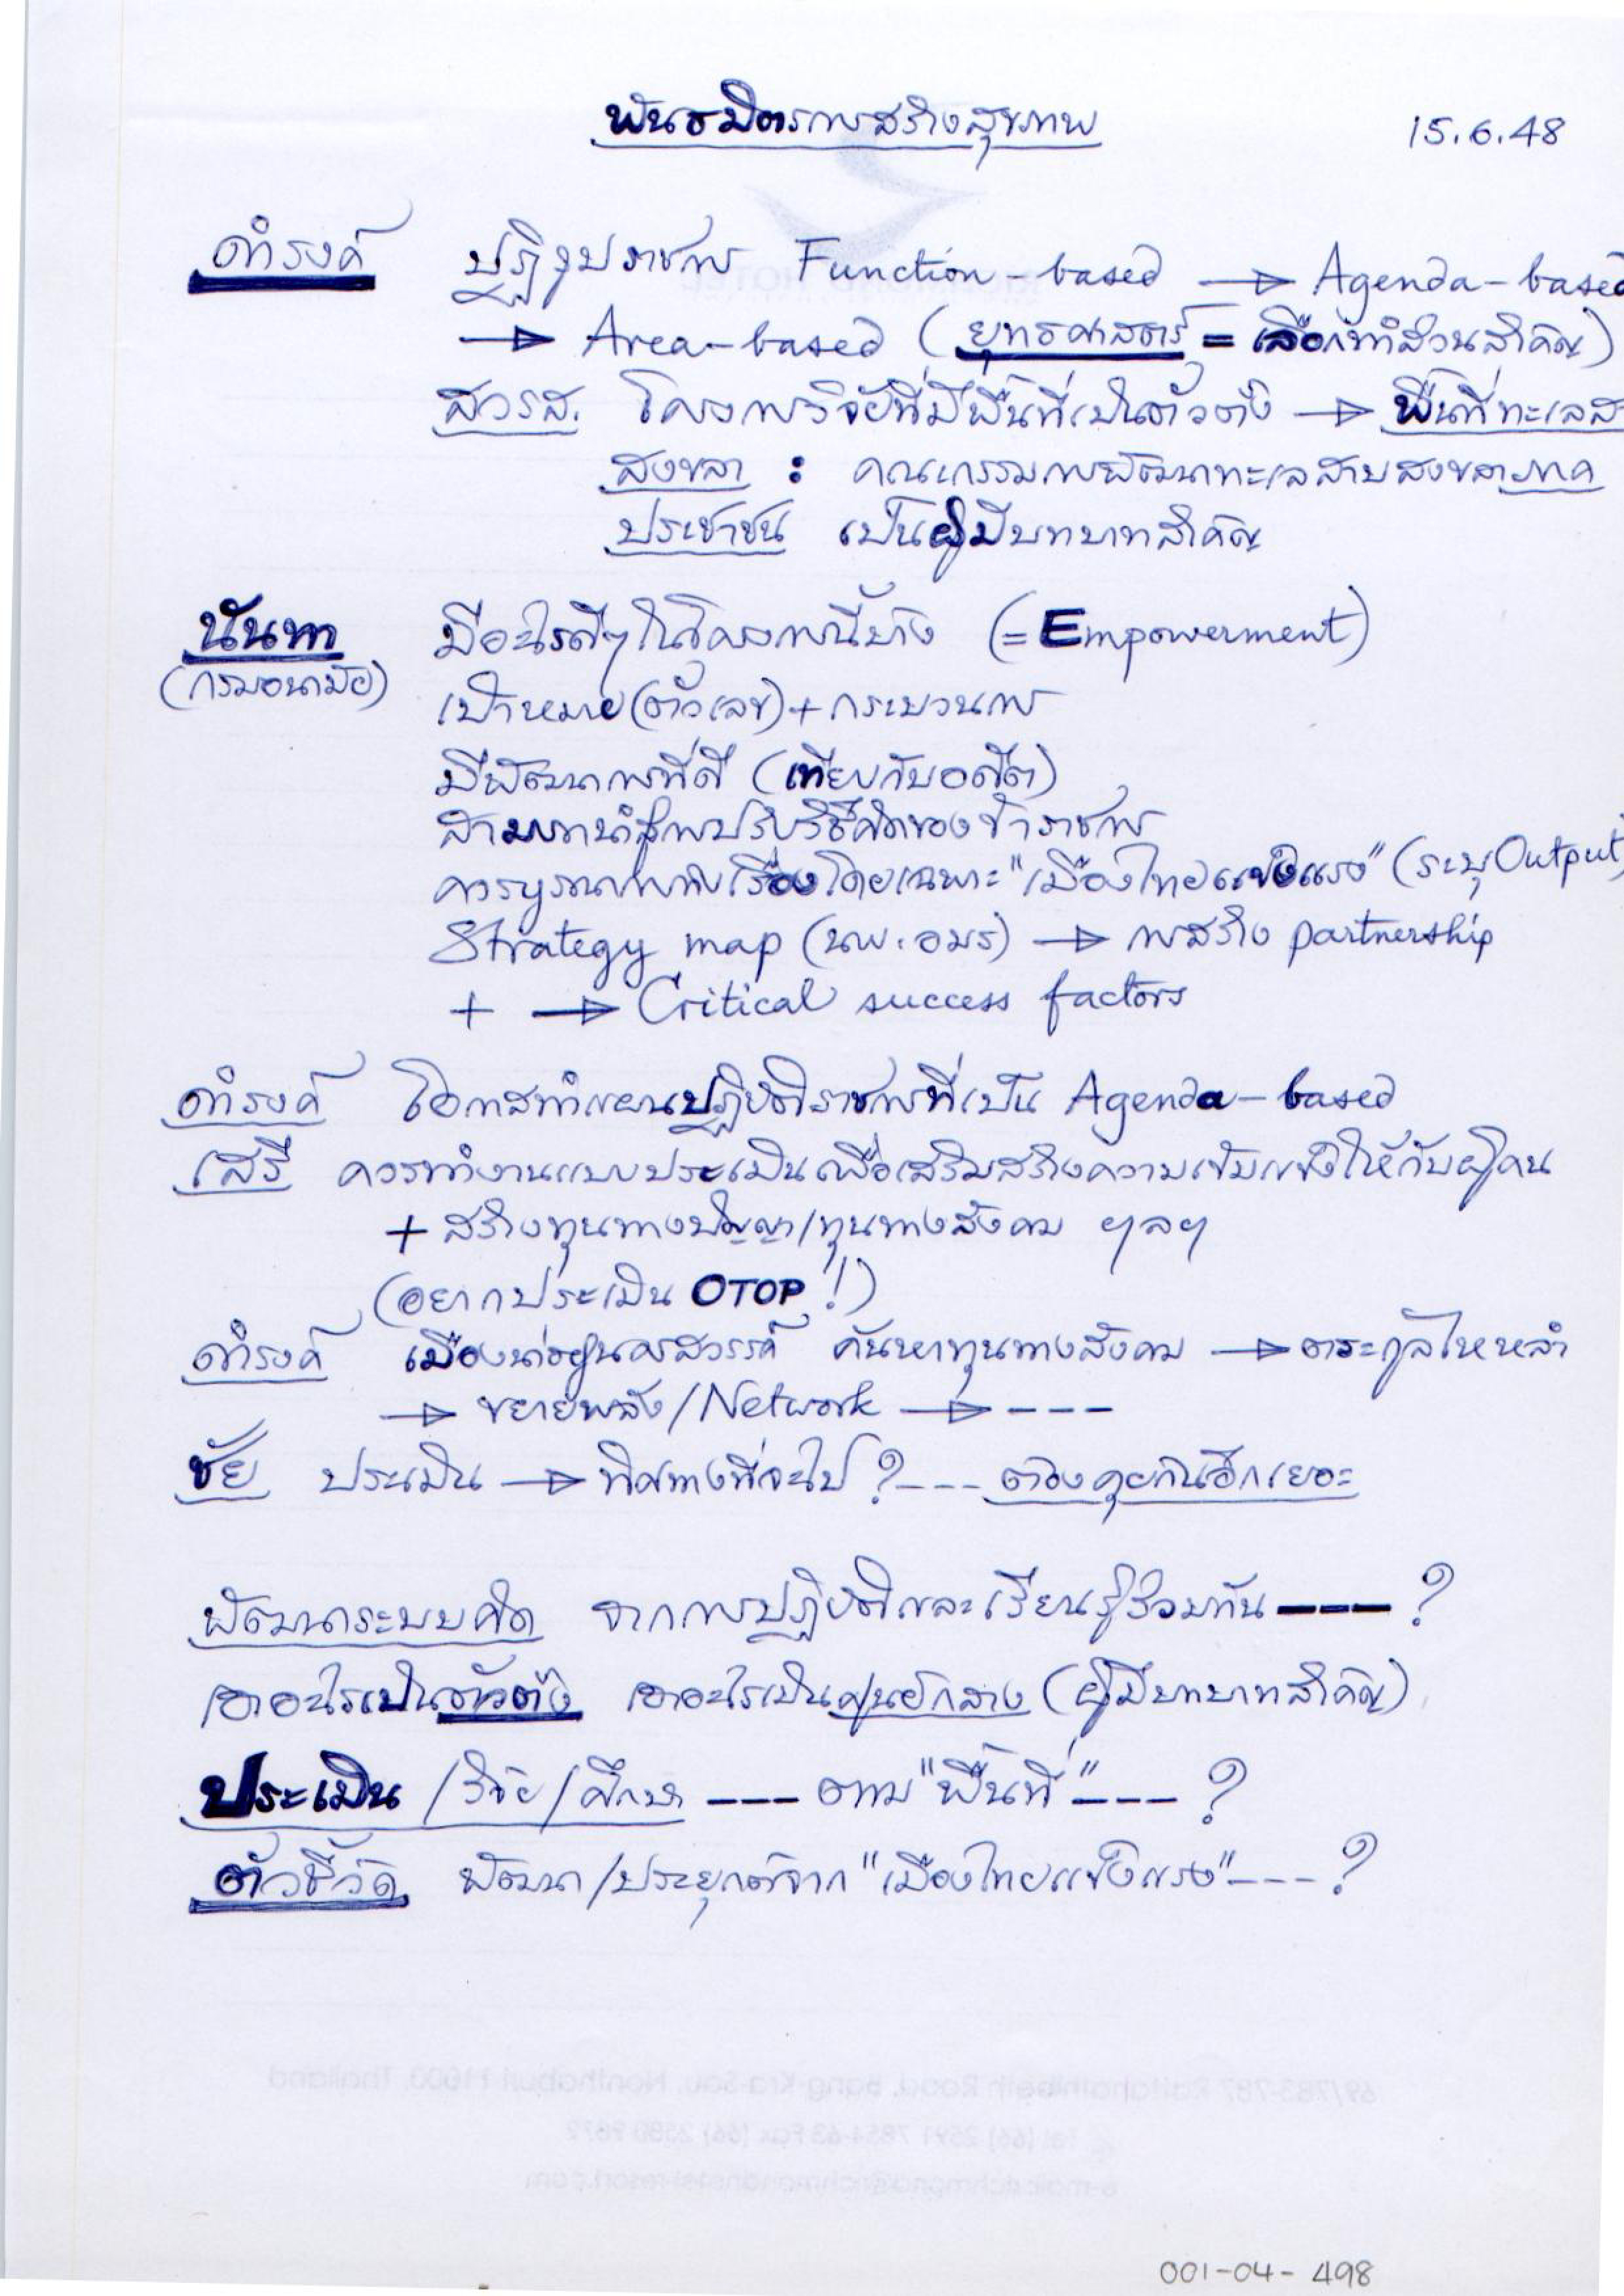 พันธมิตรการสร้างสุขภาพ 15.6.48
ดำรงค์ ปฏิรูปราชการ Function-based → Agenda-based
→ Area-based (ยุทธศาสตร์ = เลือกทำส่วนสำคัญ)
สวรส. โครงการวิจัยที่มีพื้นที่เป็นตัวตั้ง → พื้นที่ทะเลสาบ
สงขลา : คณะกรรมการพัฒนาทะเลสาบสงขลา ภาค
ประชาชน เป็นผู้มีบทบาทสำคัญ
นันทา มีอะไรดีๆ ในโครงการนี้บ้าง (= Empowerment)
(กรมอนามัย) เป้าหมาย (ตัวเลข) + กระบวนการ
มีพัฒนาการที่ดี (เทียบกับอดีต)
สามารถนำสู่การปรับวิธีคิดของข้าราชการ
ควรบูรณาการทุกเรื่องโดยเฉพาะ "เมืองไทยแข็งแรง" (ระบุ Output)
Strategy map (นพ.อมร) → การสร้าง partnership
+ → Critical success factors
ดำรงค์ โอกาสทำแผนปฏิบัติราชการที่เป็น Agenda-based
เสรี ควรทำงานแบบประเมินเพื่อเสริมสร้างความเข้มแข็งให้กับผู้คน
+ สร้างทุนทางปัญญา/ทุนทางสังคม ฯลฯ
(อยากประเมิน OTOP!)
ดำรงค์ เมืองน่าอยู่นครสวรรค์ ค้นหาทุนทางสังคม → ตระกูลไหหลำ
→ ขยายพลัง/Network → ---
ชัย ประเมิน → ทิศทางที่จะไป ? --- ต้องคุยกันอีกเยอะ
พัฒนาระบบคิด จากการปฏิบัติและเรียนรู้ร่วมกัน --- ?
เอาอะไรเป็นตัวตั้ง เอาอะไรเป็นศูนย์กลาง (ผู้มีบทบาทสำคัญ)
ประเมิน /วิจัย/ศึกษา --- ตาม "พื้นที่" --- ?
ตัวชี้วัด พัฒนา/ประยุกต์จาก "เมืองไทยแข็งแรง" --- ?
001-04-498